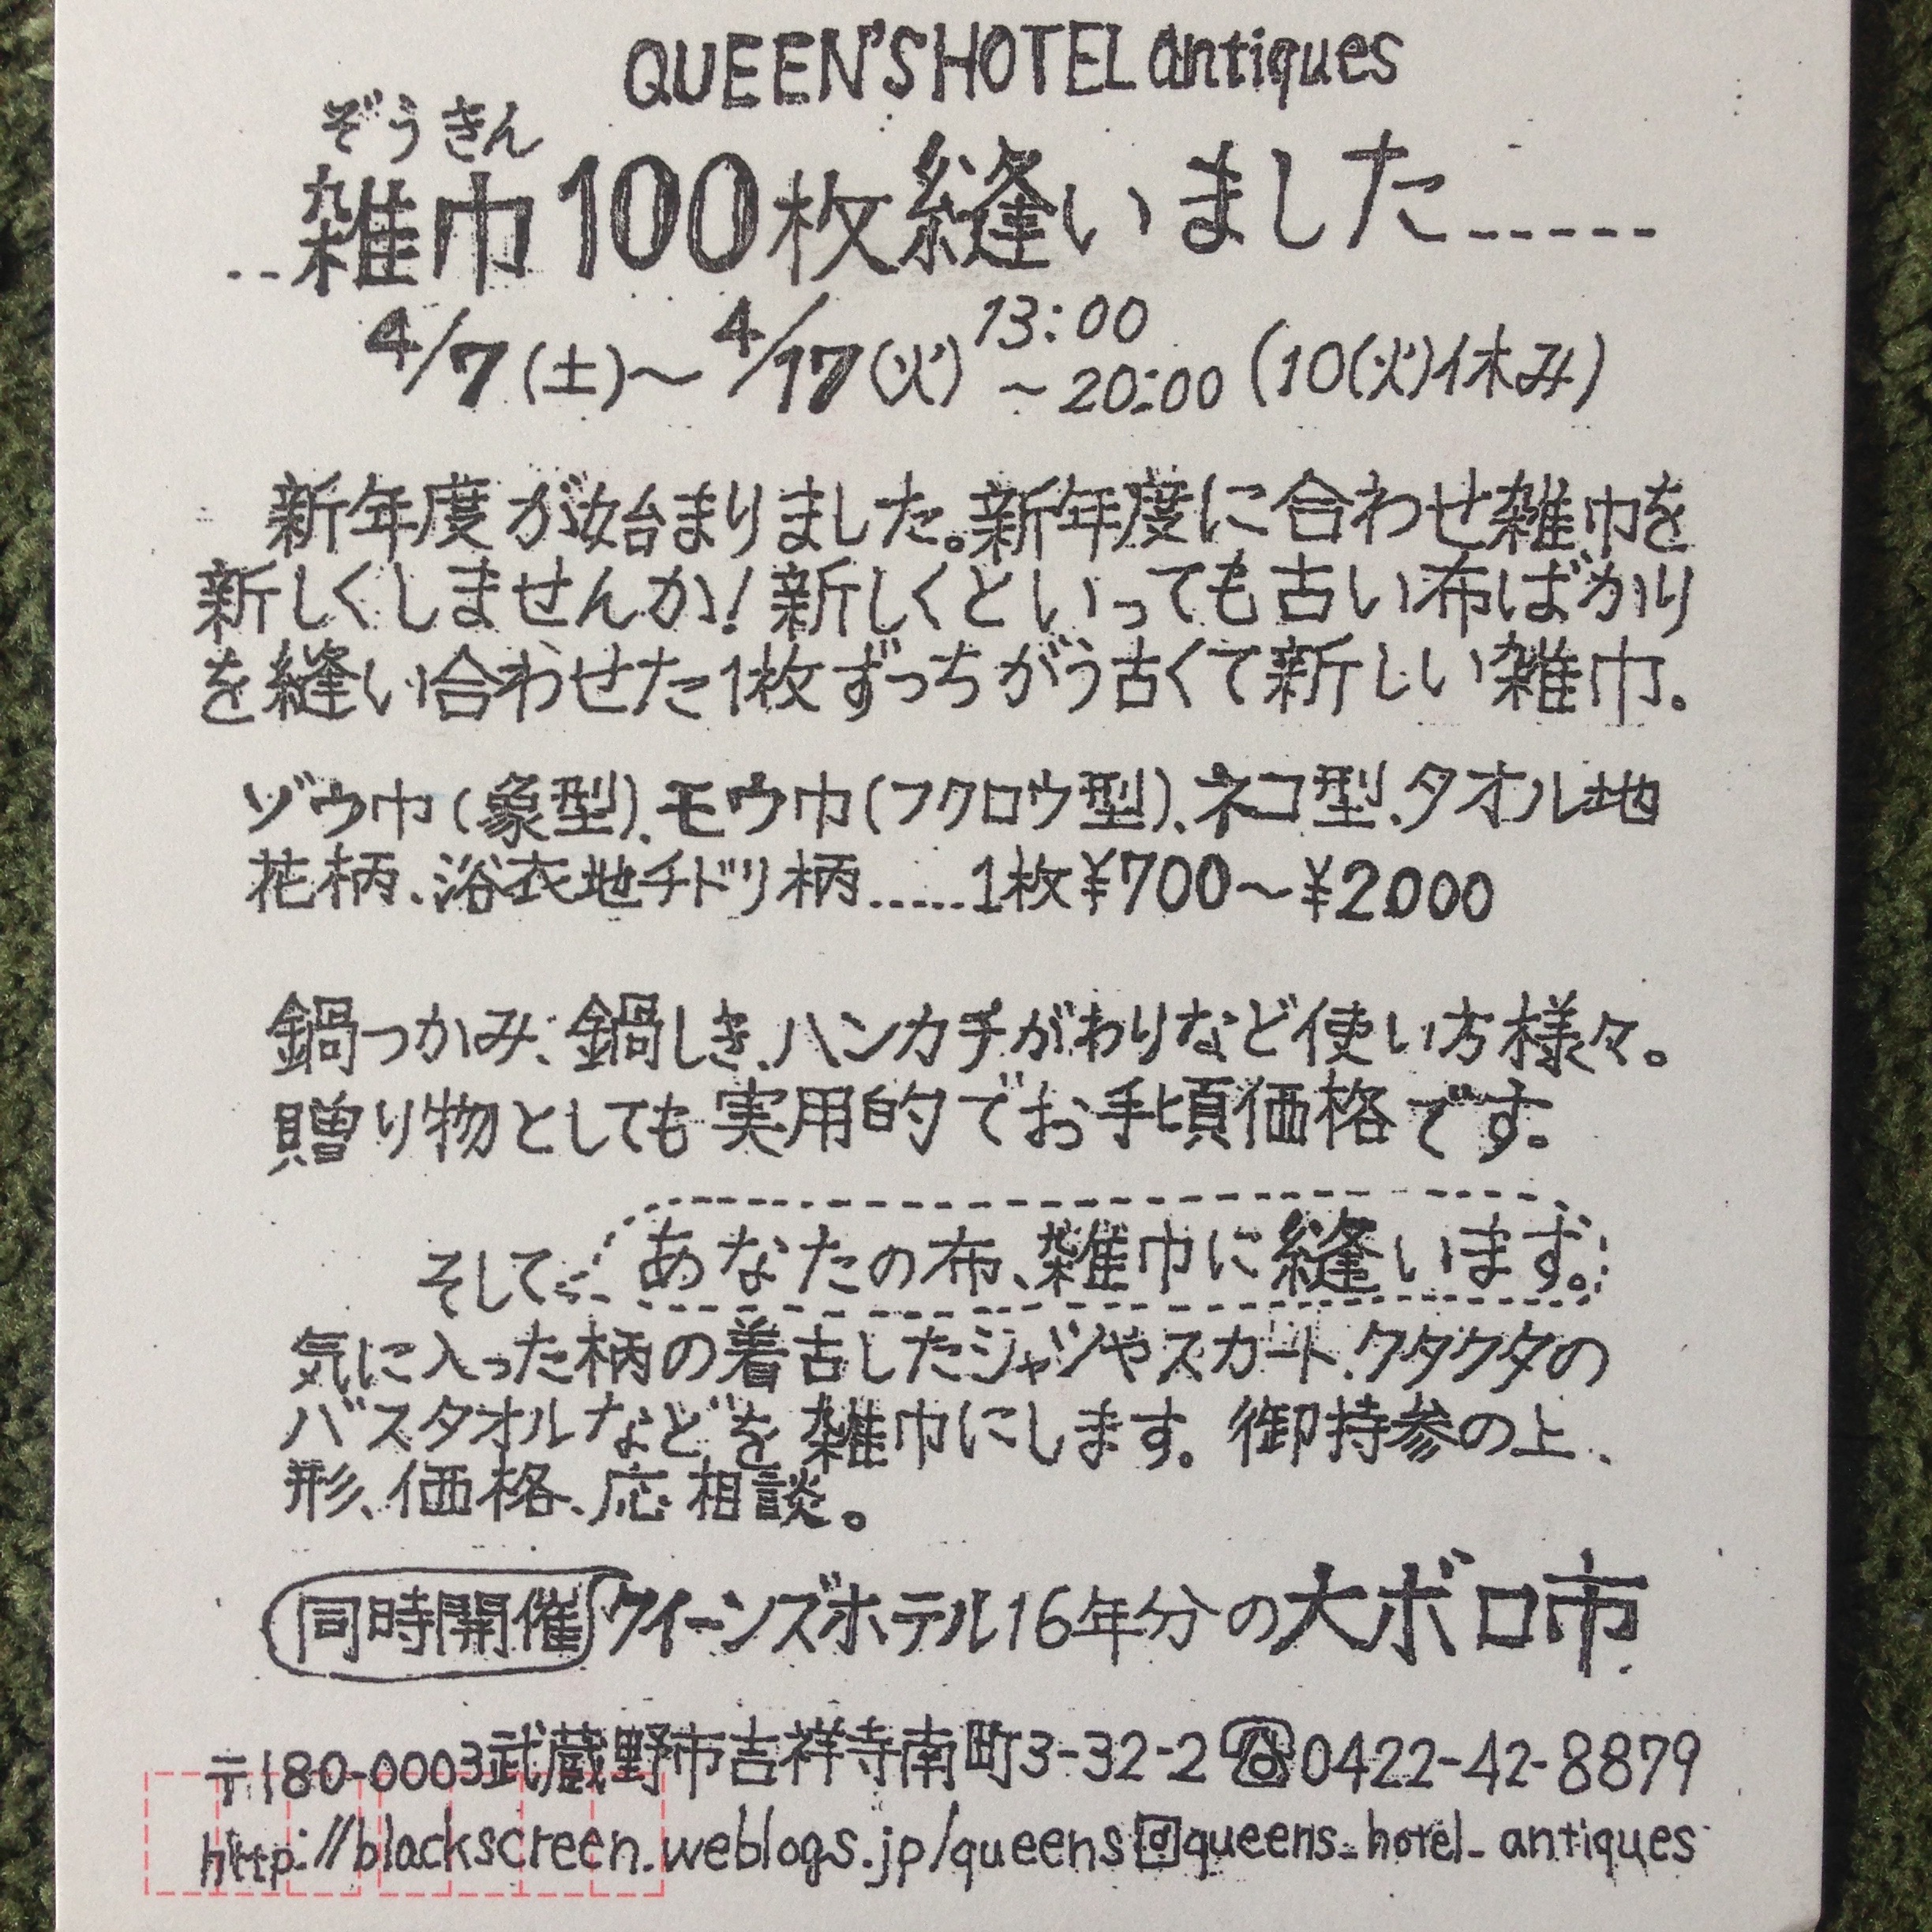 QUEEN'S HOTEL antiques
ぞうきん
..雑巾100枚縫いました......
4/7(土)〜4/17(火) 13:00〜20:00 (10(火)休み)
新年度が始まりました。新年度に合わせ雑巾を
新しくしませんか!新しくといっても古い布ばかり
を縫い合わせた1枚ずつちがう古くて新しい雑巾。
ゾウ巾(象型)、モウ巾(フクロウ型)、ネコ型、タオル地
花柄、浴衣地チドリ柄......1枚¥700〜¥2000
鍋つかみ、鍋しき、ハンカチがわりなど使い方様々。
贈り物としても実用的でお手頃価格です。
そして あなたの布、雑巾に縫います。
気に入った柄の着古したシャツやスカート、クタクタの
バスタオルなどを雑巾にします。御持参の上、
形、価格、応相談。
同時開催 クイーンズホテル16年分の大ボロ市
〒180-0003武蔵野市吉祥寺南町3-32-2☎0422-42-8879
http://blackscreen.weblogs.jp/queens queens_hotel_antiques